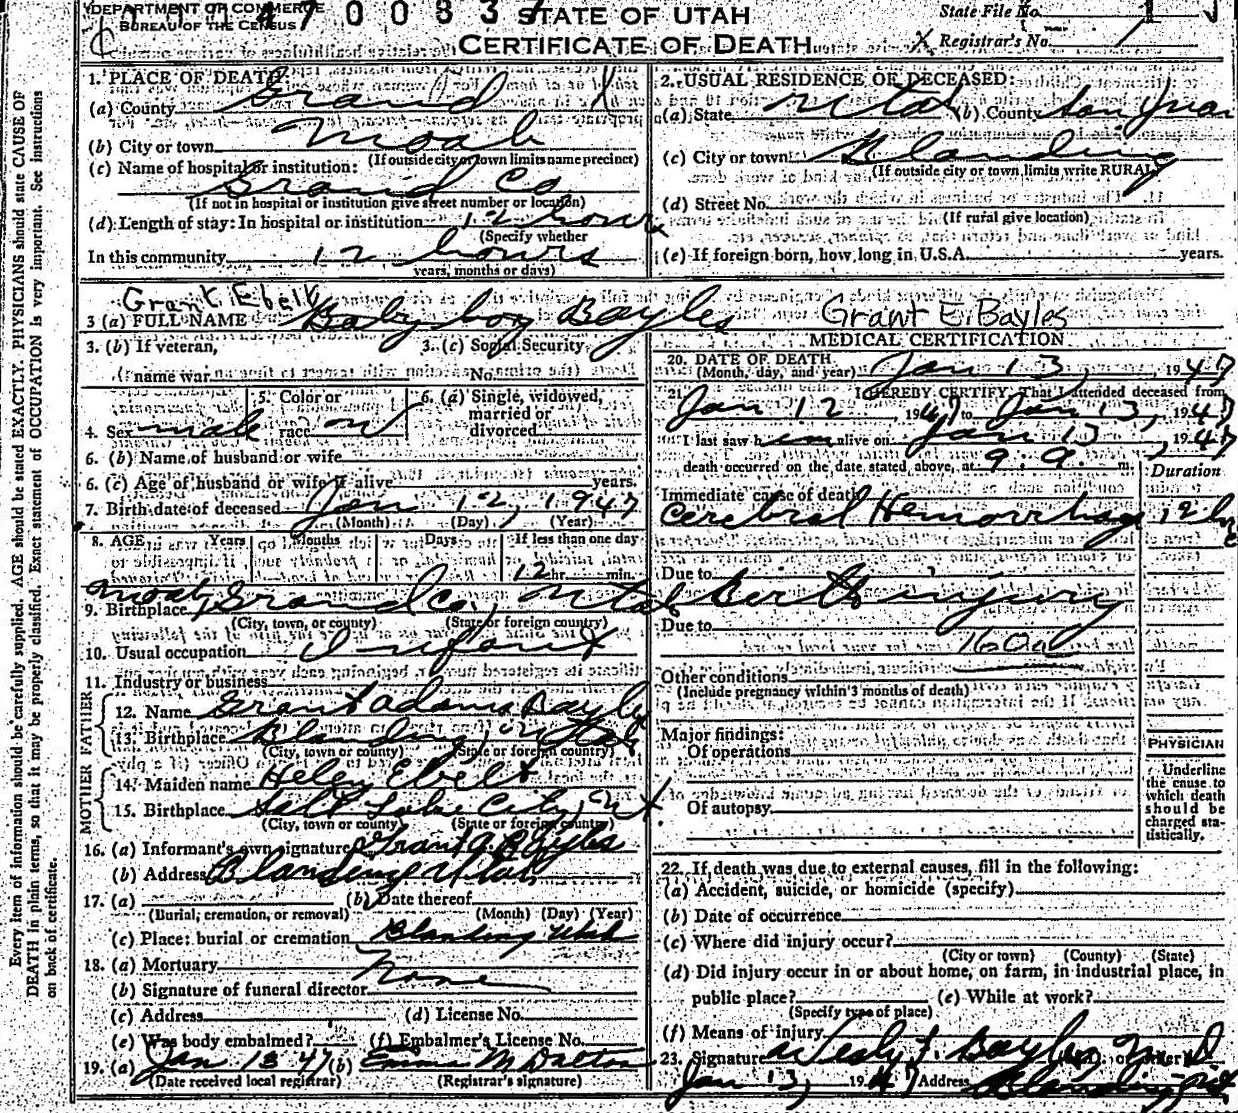 DEPARTMENT OF COMMERCE
BUREAU OF THE CENSUS
STATE OF UTAH
CERTIFICATE OF DEATH
State File No. 1
Registrar's No. 1
Every item of information should be carefully supplied. AGE should be stated EXACTLY. PHYSICIANS should state CAUSE OF
DEATH in plain terms, so that it may be properly classified. Exact statement of OCCUPATION is very important. See instructions
on back of certificate.
1. PLACE OF DEATH
(a) County Grand
(b) City or town Moab
(If outside city or town limits name precinct)
(c) Name of hospital or institution:
Grand Co
(If not in hospital or institution give street number or location)
(d) Length of stay: In hospital or institution 12 hours
(Specify whether
In this community 12 hours
years, months or days)
2. USUAL RESIDENCE OF DECEASED:
(a) State Utah (b) County San Juan
(c) City or town Blanding
(If outside city or town limits write RURAL)
(d) Street No.
(If rural give location)
(e) If foreign born, how long in U.S.A. years.
Grant Ebelt
3 (a) FULL NAME Baby boy Bayles Grant E. Bayles
3. (b) If veteran, 3. (c) Social Security
name war No.
4. Sex male 5. Color or race W 6. (a) Single, widowed, married or divorced
6. (b) Name of husband or wife
6. (c) Age of husband or wife if alive years.
7. Birth date of deceased Jan 12, 1947
(Month) (Day) (Year)
8. AGE Years Months Days If less than one day
12 hr. min.
9. Birthplace Moab, Grand Co., Utah
(City, town, or county) (State or foreign country)
10. Usual occupation Infant
11. Industry or business
FATHER
12. Name Grant Adams Bayles
13. Birthplace Blanding, Utah
(City, town or county) (State or foreign country)
MOTHER
14. Maiden name Helen Ebelt
15. Birthplace Salt Lake City, Ut.
(City, town or county) (State or foreign country)
16. (a) Informant's own signature Grant A. Bayles
(b) Address Blanding Utah
17. (a) (b) Date thereof
(Burial, cremation, or removal) (Month) (Day) (Year)
(c) Place: burial or cremation Blanding Utah
18. (a) Mortuary
(b) Signature of funeral director None
(c) Address (d) License No.
(e) Was body embalmed? (f) Embalmer's License No.
19. (a) Jan 13 47 (b) Emma M Dalton
(Date received local registrar) (Registrar's signature)
MEDICAL CERTIFICATION
20. DATE OF DEATH
(Month, day, and year) Jan 13, 1947
21. I HEREBY CERTIFY, That I attended deceased from
Jan 12 1947 to Jan 13, 1947
I last saw him alive on Jan 13, 1947
death occurred on the date stated above, at 9 a. m.
Duration
Immediate cause of death
Cerebral Hemorrhage 12 hrs
Due to Birth injury
Due to
160a
Other conditions
(Include pregnancy within 3 months of death)
Major findings:
Of operations
Of autopsy
PHYSICIAN
Underline
the cause to
which death
should be
charged sta-
tistically.
22. If death was due to external causes, fill in the following:
(a) Accident, suicide, or homicide (specify)
(b) Date of occurrence
(c) Where did injury occur?
(City or town) (County) (State)
(d) Did injury occur in or about home, on farm, in industrial place, in
public place? (e) While at work?
(Specify type of place)
(f) Means of injury
23. Signature Bayles M D
Jan 13, 1947 Address Blanding, Ut